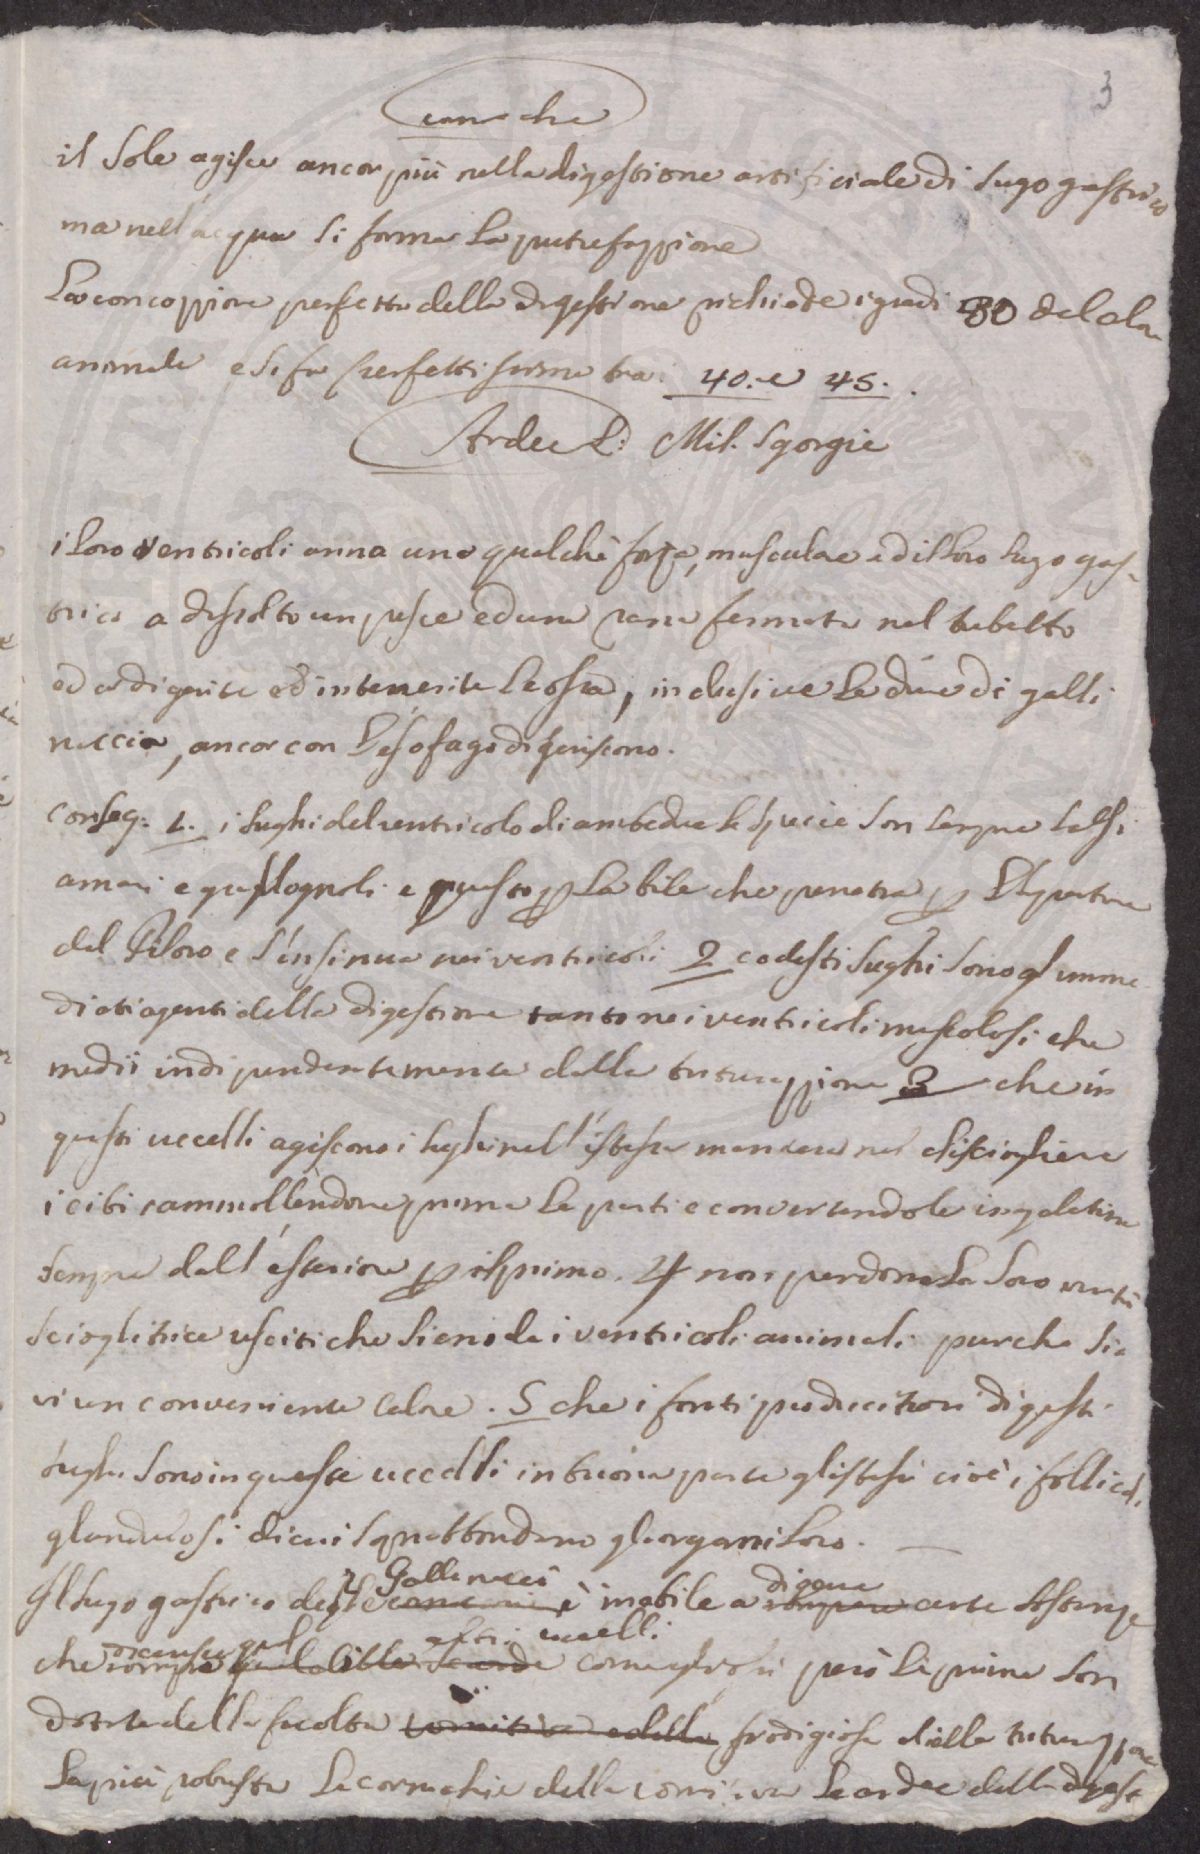 3
cornache
il sole agisce ancor più nella digestione artificiale di sugo gastrico
ma nell'acqua si forma la putrefazzione
La concozzione perfetta della digestione richiede i gradi 30 del calor
animale e si fa perfettissima tra 40. e 45.
Ardee L: Mil. Sgorgie
i loro ventricoli anno una qualche forza, musculare ed il loro sugo gas
trico a dissolto un pesce ed una rana fermata nel tubetto
ed a digerite ed intenerite le ossa, inclusive le dure di galli
naccio, ancor con l'esofago digeriscono.
Conseg: 1. i sughi del ventricolo di ambedue le specie son sempre salsi
amari e questo p la bile che penetra p l'apertura
del Piloro e s'insinua nei ventricoli 2 codesti sughi sono gl'imme
diati agenti della digestione tanto nei ventricoli muscolosi che
medii indipendentemente dalla triturazzione 3 che in
questi uccelli agiscono i sughi nell'istessa maniera nel disciogliere
i cibi rammollendone prima le parti e convertendole in gelatina
sempre dall'esteriore p il primo. 4 non perdono la loro virtù
scioglitrice usciti che sieno da i ventricoli animali purche sia
vi un conveniente calore. 5 che i fonti producitori di questi
sughi sono in queste uccelli in buona parte gl'istessi cioè i follicoli
glandulosi di cui soprabbondano gl'organi loro.
Gallinacci digerire
Il sugo gastrico degl' è inabile a rompere certe sostanze
altri uccelli
che come gl'ossi però li primi son
dotate della facoltà prodigiosa della triturazzione
la più robusta le cornachie della le ardee della digest